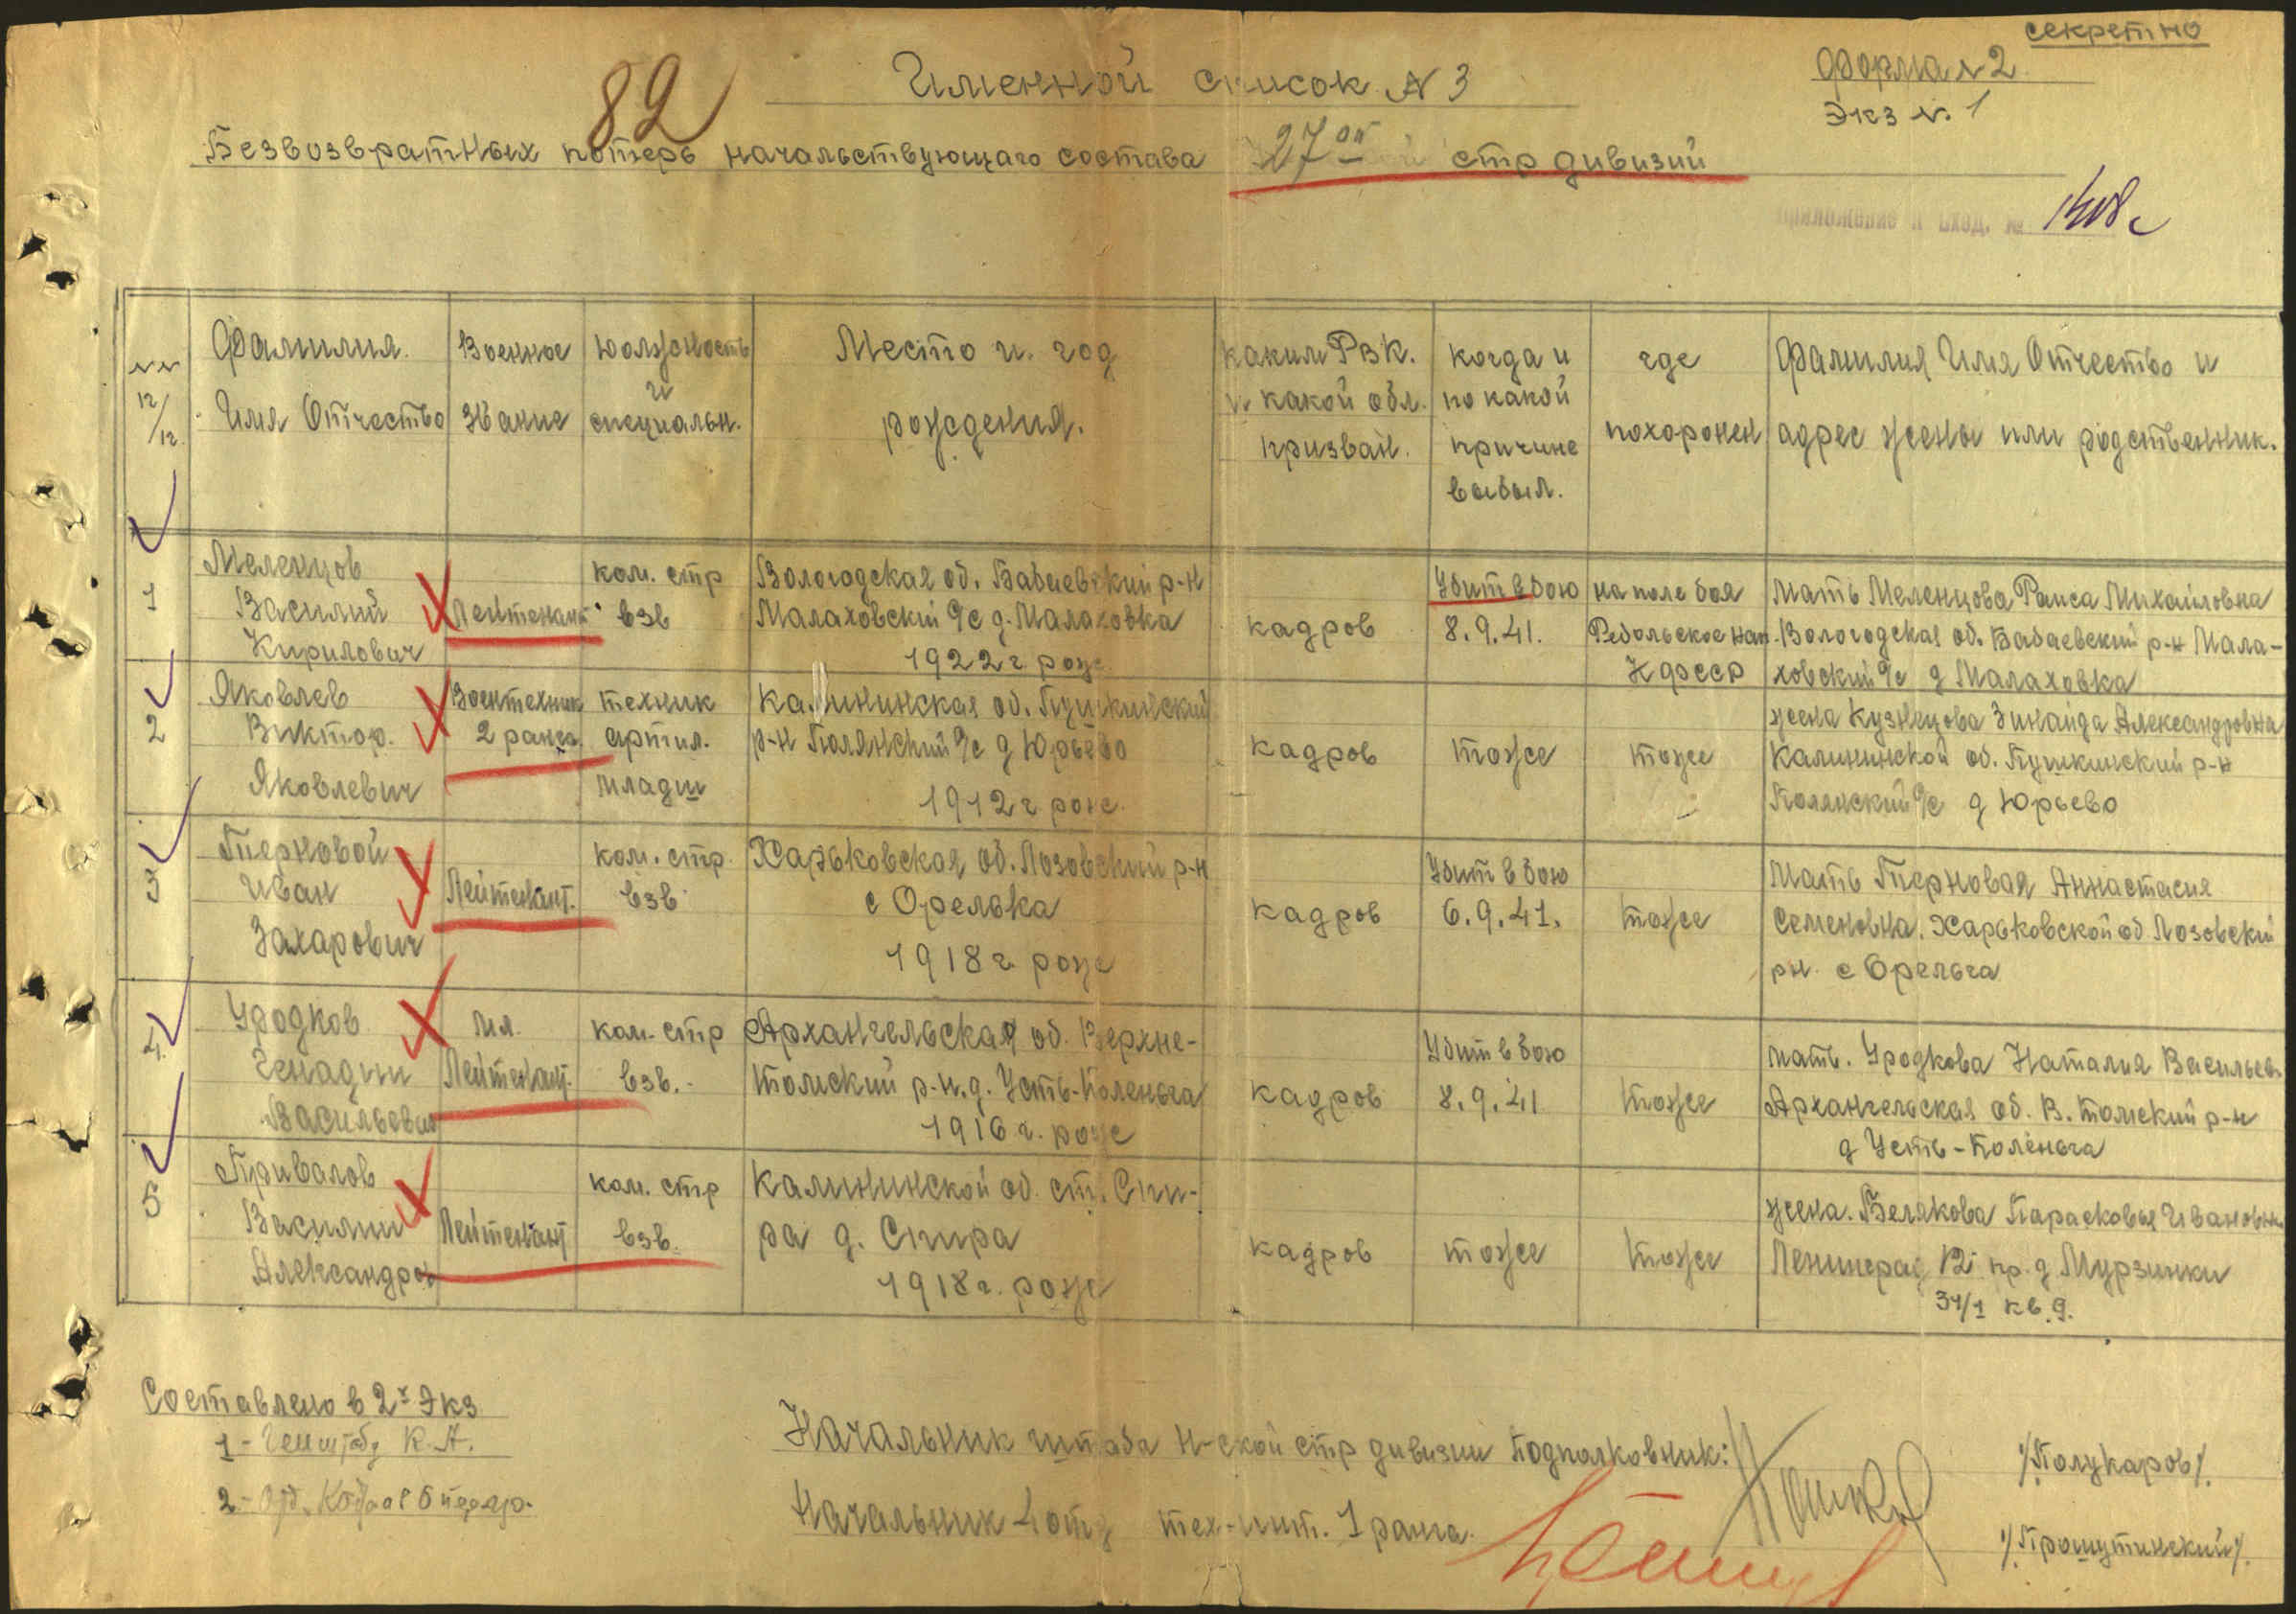 секретно
Форма №2
Экз №. 1
82
Именной список № 3
Безвозвратных потерь начальствующаго состава 27ой стр дивизии
приложение к вход. № 1408с
№№ п/п.
Фамилия Имя Отчество
Военное звание
должность и специальн.
Место и год рождения.
каким РВК. и какой обл. призван.
когда и по какой причине выбыл.
где похоронен
Фамилия Имя Отчество и адрес жены или родственник.
1
Меленцов
Василий
Кирилович
Лейтенант
ком. стр
взв
Вологодская об. Бабаевский р-н
Малаховский с/с д. Малаховка
1922 г рож
кадров
Убит в бою
8.9.41.
на поле боя
Ребольское нап.
КФССР
Мать Меленцова Раиса Михайловна
Вологодская об. Бабаевский р-н Мала-
ховский с/с д Малаховка
2
Яковлев
Виктор.
Яковлевич
Воентехник
2 ранга
техник
артил.
младш
Калининская об. Пушкинский
р-н Полянский с/с д Юрьево
1912 г рож.
кадров
тоже
тоже
жена Кузнецова Зинаида Александровна
Калининской об. Пушкинский р-н
Полянский с/с д Юрьево
3
Терновой
Иван
Захарович
Лейтенант.
ком. стр.
взв
Харьковская об. Лозовский р-н
с Орелька
1918 г рож
кадров
Убит в бою
6.9.41.
тоже
Мать Терновая Аннастасия
Семеновна. Харьковской об Лозовский
рн. с Орельга
4.
Уродков
Генадии
Васильевич
мл.
Лейтенант.
ком. стр
взв.
Архангельская об. Верхне-
томский р-н. д. Усть-Поленьга
1916 г. рож
кадров
Убит в бою
8.9.41
тоже
мать. Уродкова Наталия Васильев.
Архангельская об. В. томский р-н
д Усть-Поленьга
5
Привалов
Василии
Александров
Лейтенант
ком. стр
взв.
Калининской об. ст. Спи-
ра д. Спира
1918 г. рож
кадров
тоже
тоже
жена. Белякова Парасковья Ивановн
Ленинград 12 пр. д Мурзинки
34/1 кв. 9.
Составлено в 2х Экз
1 - Генштабу К.А.
2 -
Начальник штаба Н-ской стр дивизии Подполковник: /Полукаров/.
Начальник 4 отд тех-инт. 1 ранга. /Прошутинский/.